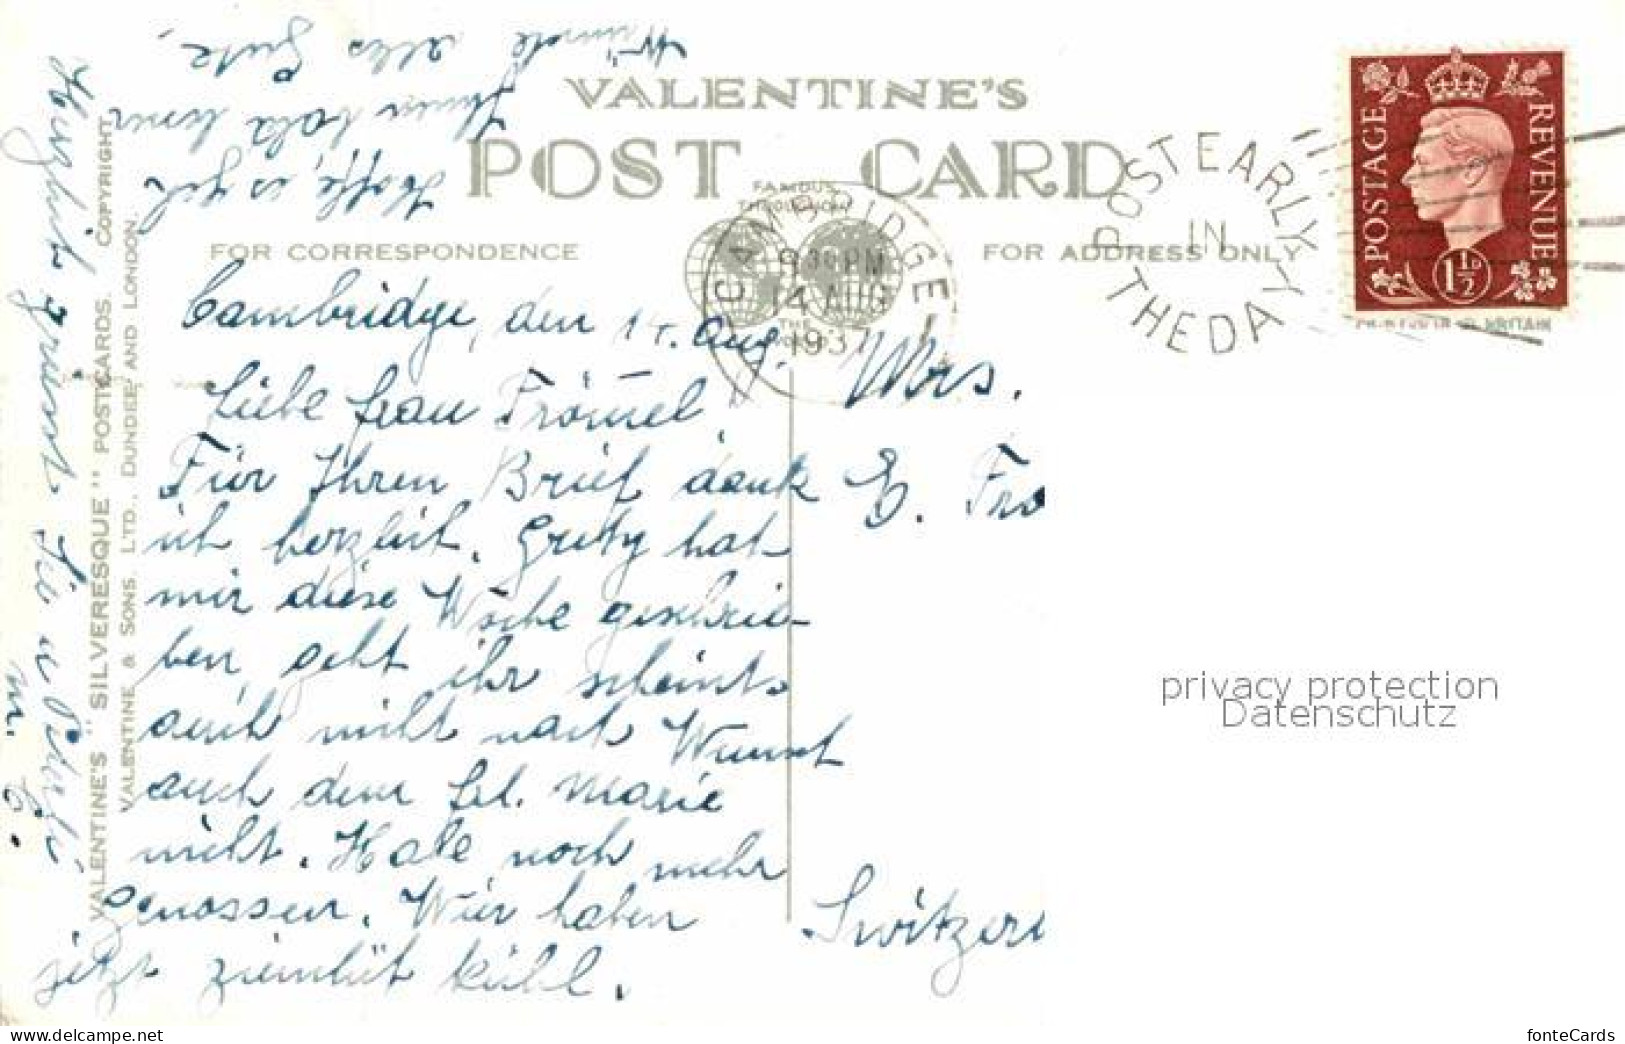 VALENTINE'S
POST CARD
FAMOUS
THROUGHOUT
THE
WORLD
FOR CORRESPONDENCE
FOR ADDRESS ONLY
CAMBRIDGE
8 30 PM
14 AUG
1937
POST EARLY
IN
THE DAY
POSTAGE
REVENUE
1½D
Cambridge, den 14. Aug.
Liebe Frau Frömel,
Für Ihren Brief dank
ich herzlich. Gretty hat
mir diese Woche geschrie-
ben, geht ihr scheints
auch nicht nach Wunsch
auch dem Frl. Marie
nicht. Habe noch mehr
genossen. Wir haben
jetzt ziemlich kühl.
Hoffe, es geh
Ihnen bald besser
Wünsche alles Gute,
Herzlich grüsst Sie u
M. C.
Mrs.
E. Frö
Switzerl
VALENTINE'S "SILVERESQUE" POSTCARDS. COPYRIGHT.
VALENTINE & SONS, LTD., DUNDEE AND LONDON.
PRINTED IN GT. BRITAIN
privacy protection
Datenschutz
www.delcampe.net
fonteCards